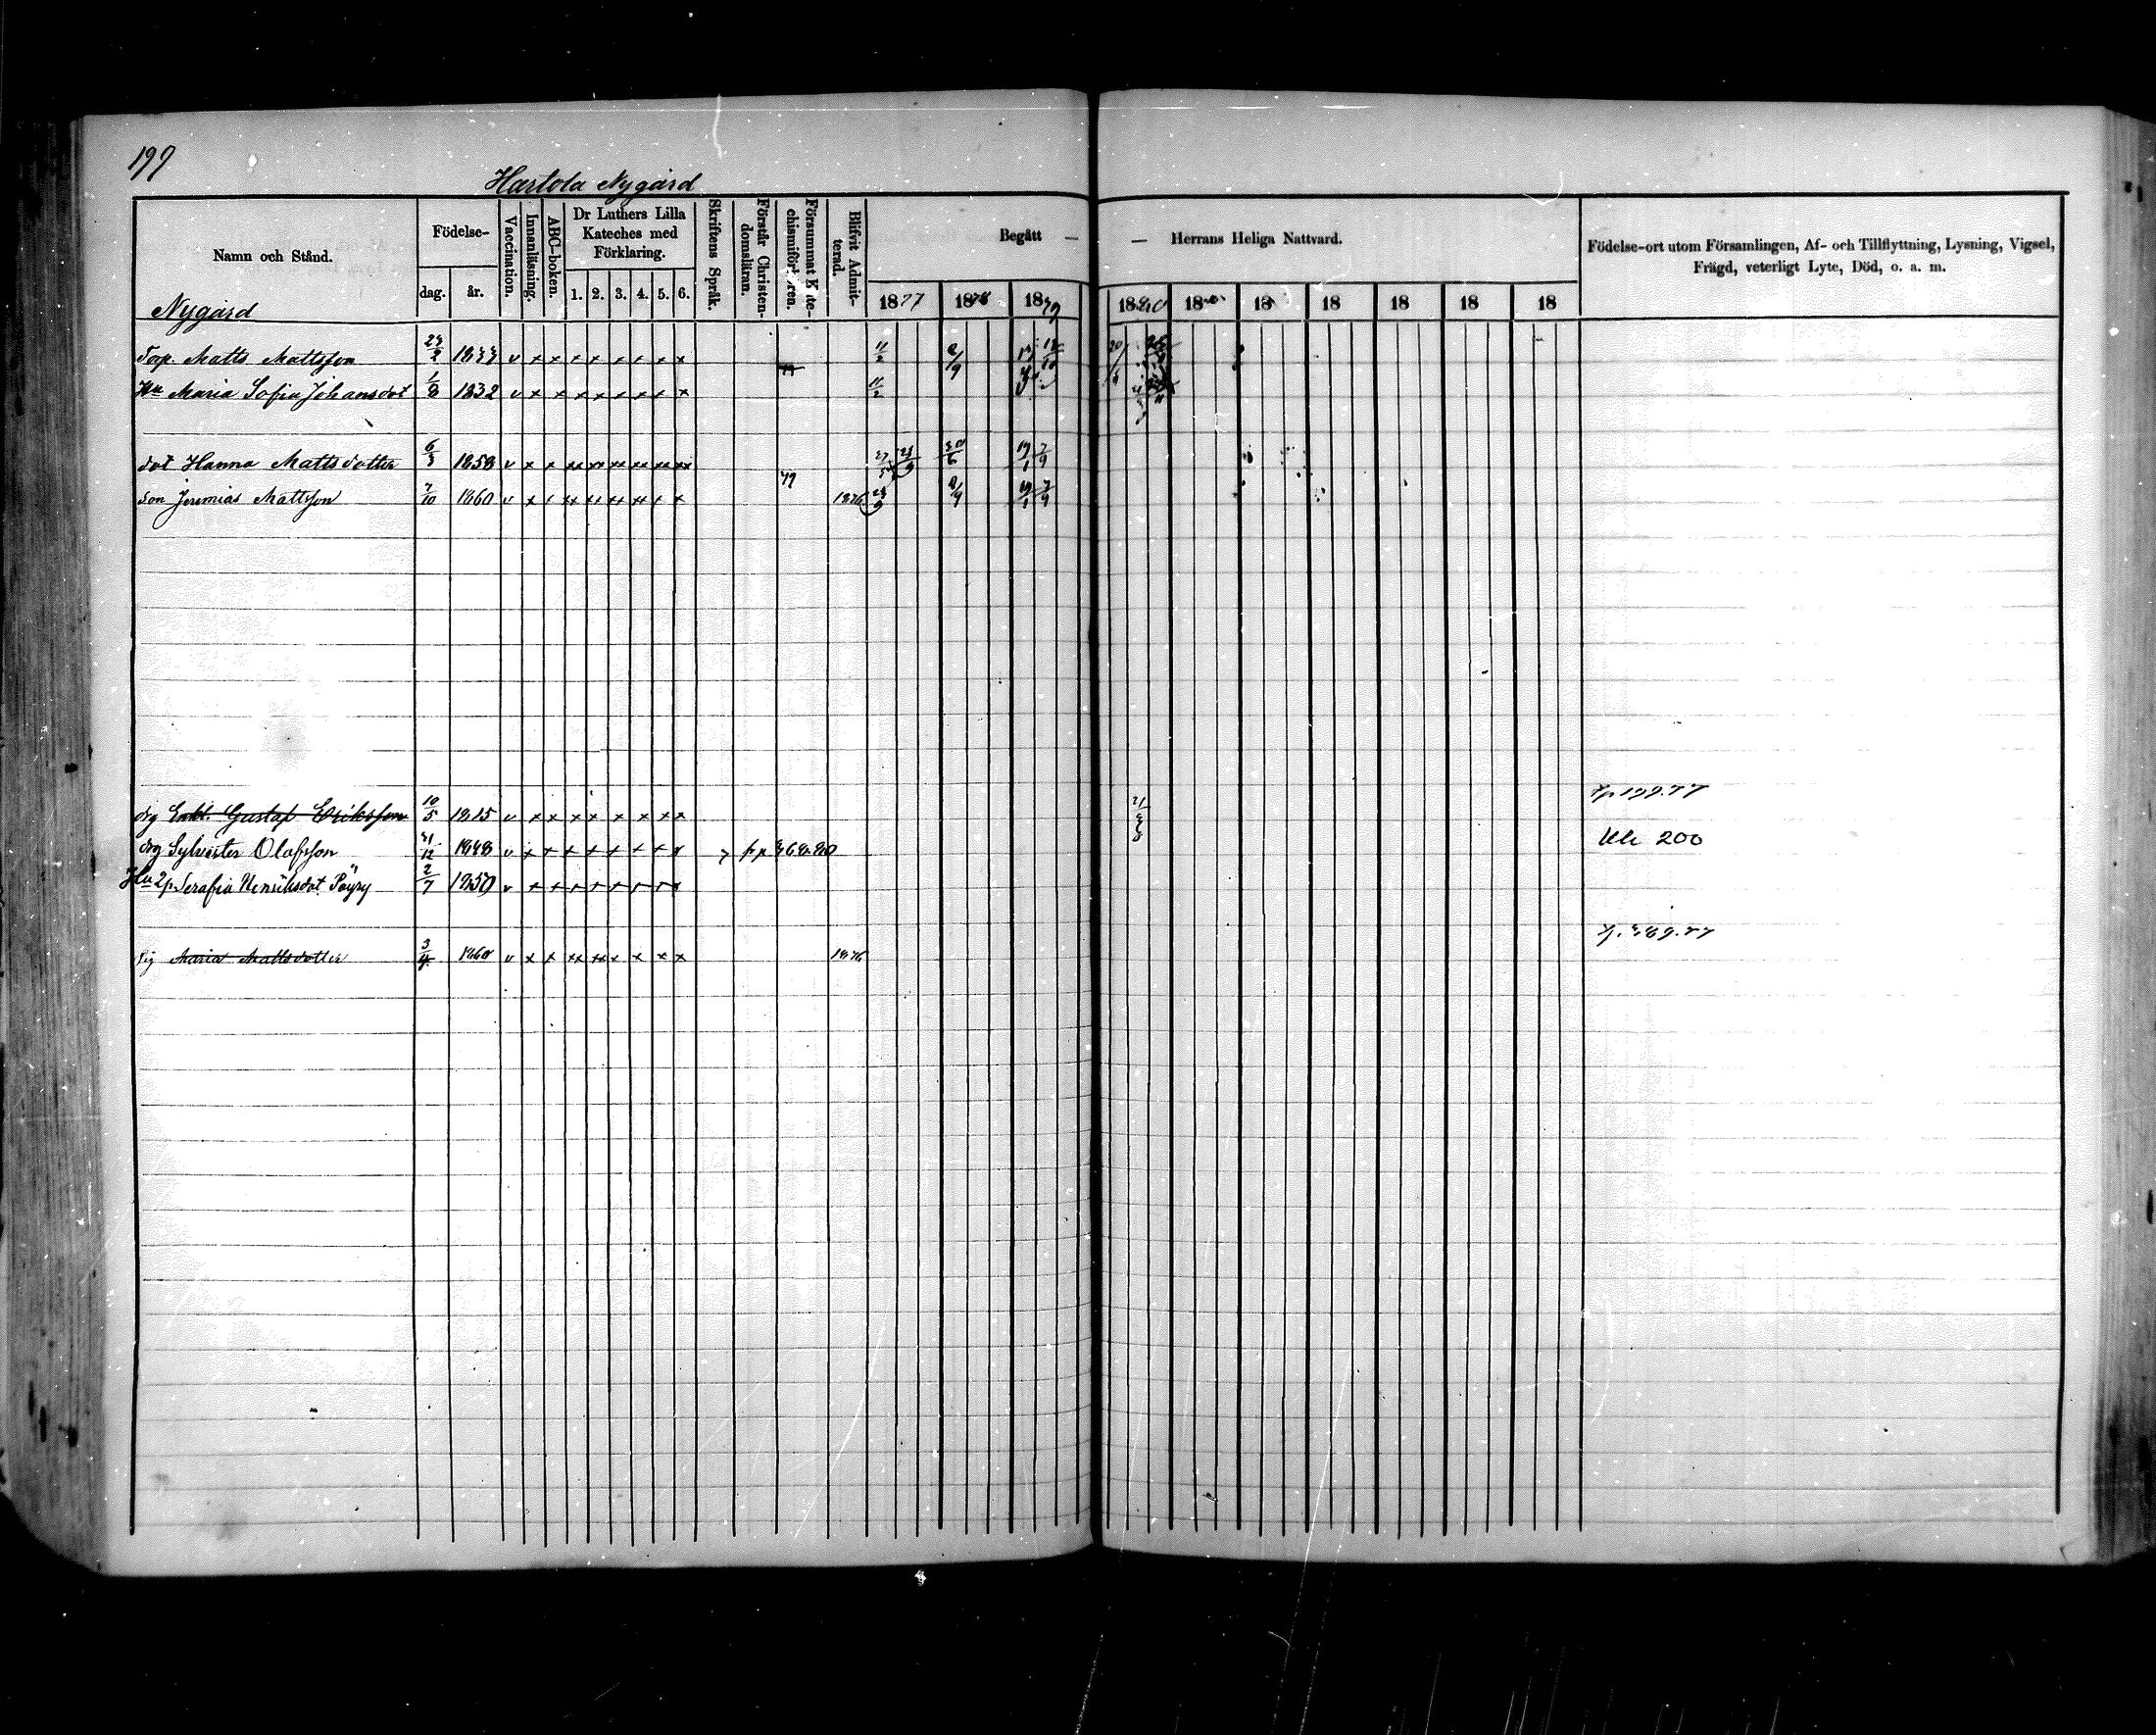 197
Hartola Nygård
Namn och Stånd.
Födelse-
dag. år.
Vaccination.
Innanläsning.
ABC-boken.
Dr Luthers Lilla Kateches med Förklaring.
1. 2. 3. 4. 5. 6.
Skriftens Språk.
Förstår Christen-domsläran.
Försummat K te-chismiförh ren.
Blifvit Admit-terad.
Begått —
— Herrans Heliga Nattvard.
1877 1878 1879 1880 18 18 18 18 18 18
Födelse-ort utom Församlingen, Af- och Tillflyttning, Lysning, Vigsel,
Frägd, veterligt Lyte, Död, o. a. m.
Nygård
Torp. Matts Mattsson v x x x x x x x x 11/2 8/9
Hu Maria Sofia Johansdot 1/8 1832 v x x x x x x x x 11/2
dot Hanna Mattsdotter 6/3 1858 v x x xx xx xx xx xx xx 30/6 19/1 7/9
79
Son Jeremias Mattsson 7/10 1860 v x x xx xx xx xx x x 1876 23/9 8/9 19/1 7/9
drg Enkl. Gustaf Eriksson 10/5 1815 v x x x x x x x x
drg Sylvester Olofsson 31/12 1848 v x x x x x x x x
Hu 2/ Serafia Henriksdot Päyry 2/7 1850 v x x x x x x x x
200
Pig Maria Mattsdotter 3/4 1860 v x x xx xx x x x x 1876